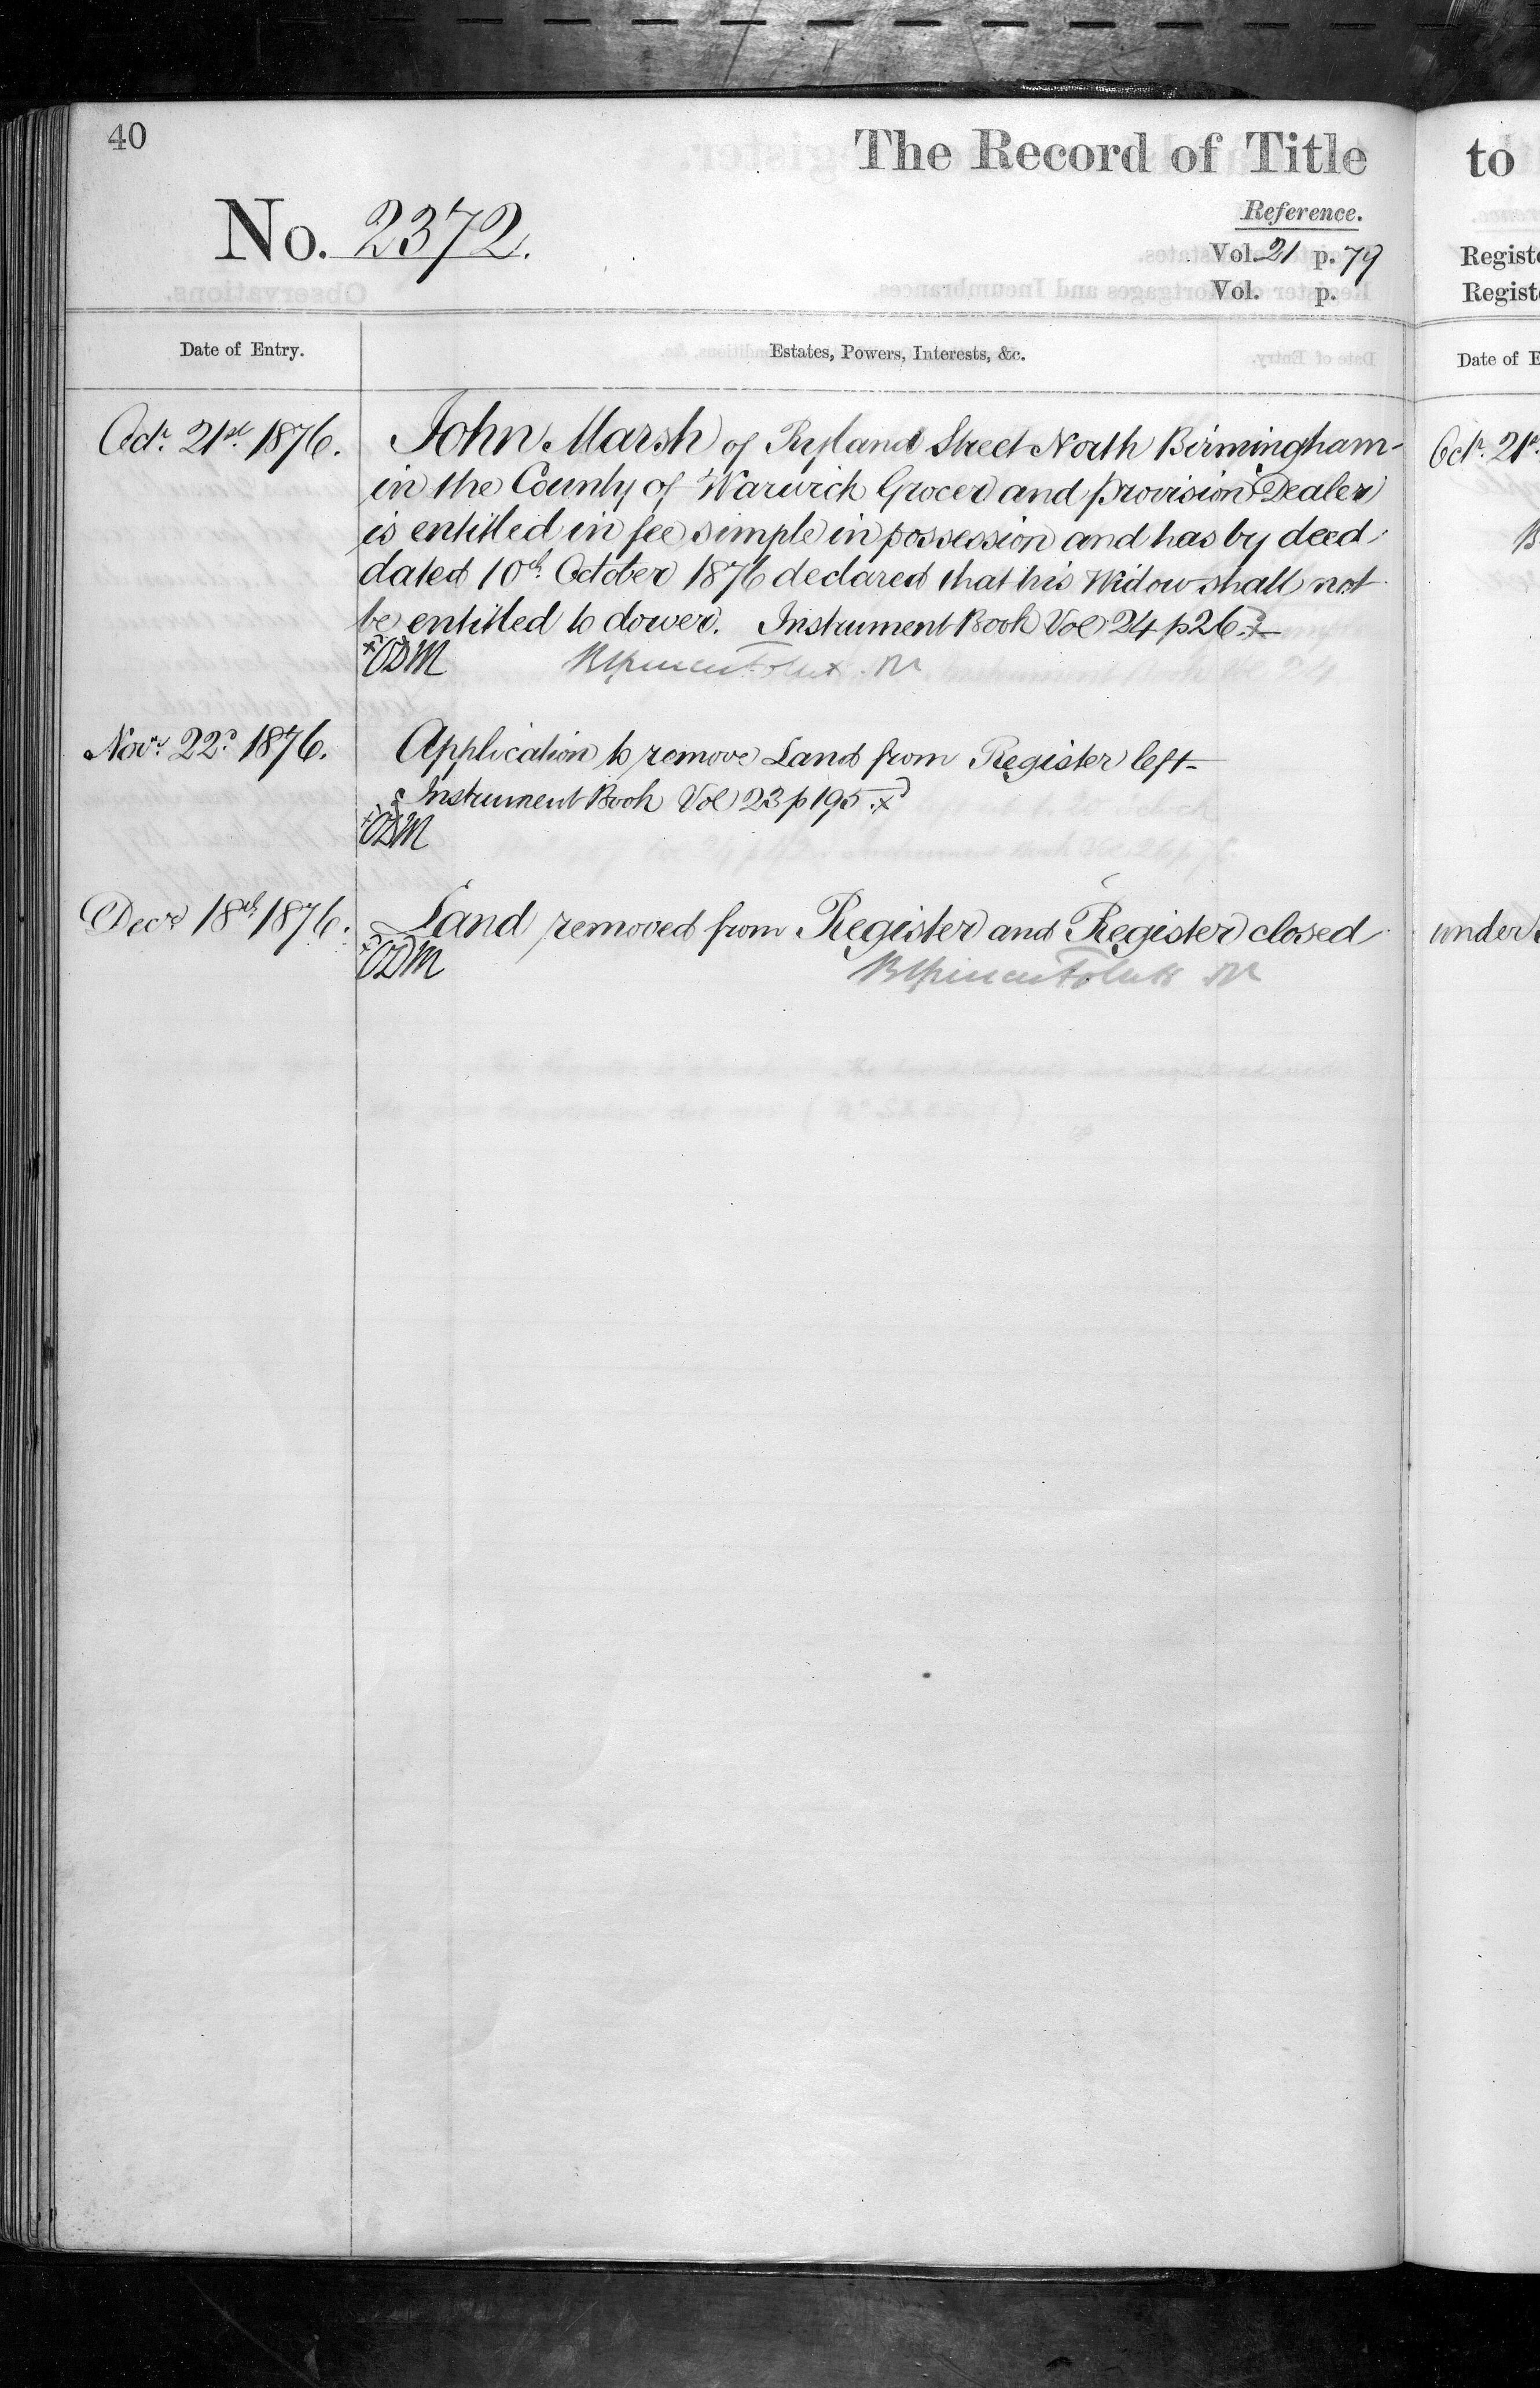 40
The Record of Title
No. 2372.
Reference.
Vol. 21 p. 79
Vol. p.
Date of Entry.
Estates, Powers, Interests, &c.
Octr. 21st 1876.
John Marsh of Ryland Street North Birmingham
in the County of Warwick Grocer and Provision Dealer
is entitled in fee simple in possession and has by deed
dated 10th October 1876 declared that his Widow shall not
be entitled to dower. Instrument Book Vol 24 p 26.
Novr. 22d. 1876.
Application to remove Land from Register left
Instrument Book Vol 23 p 195.
Decr 18th 1876.
Land removed from Register and Register closed
to
Date of E
Octr. 21st
under